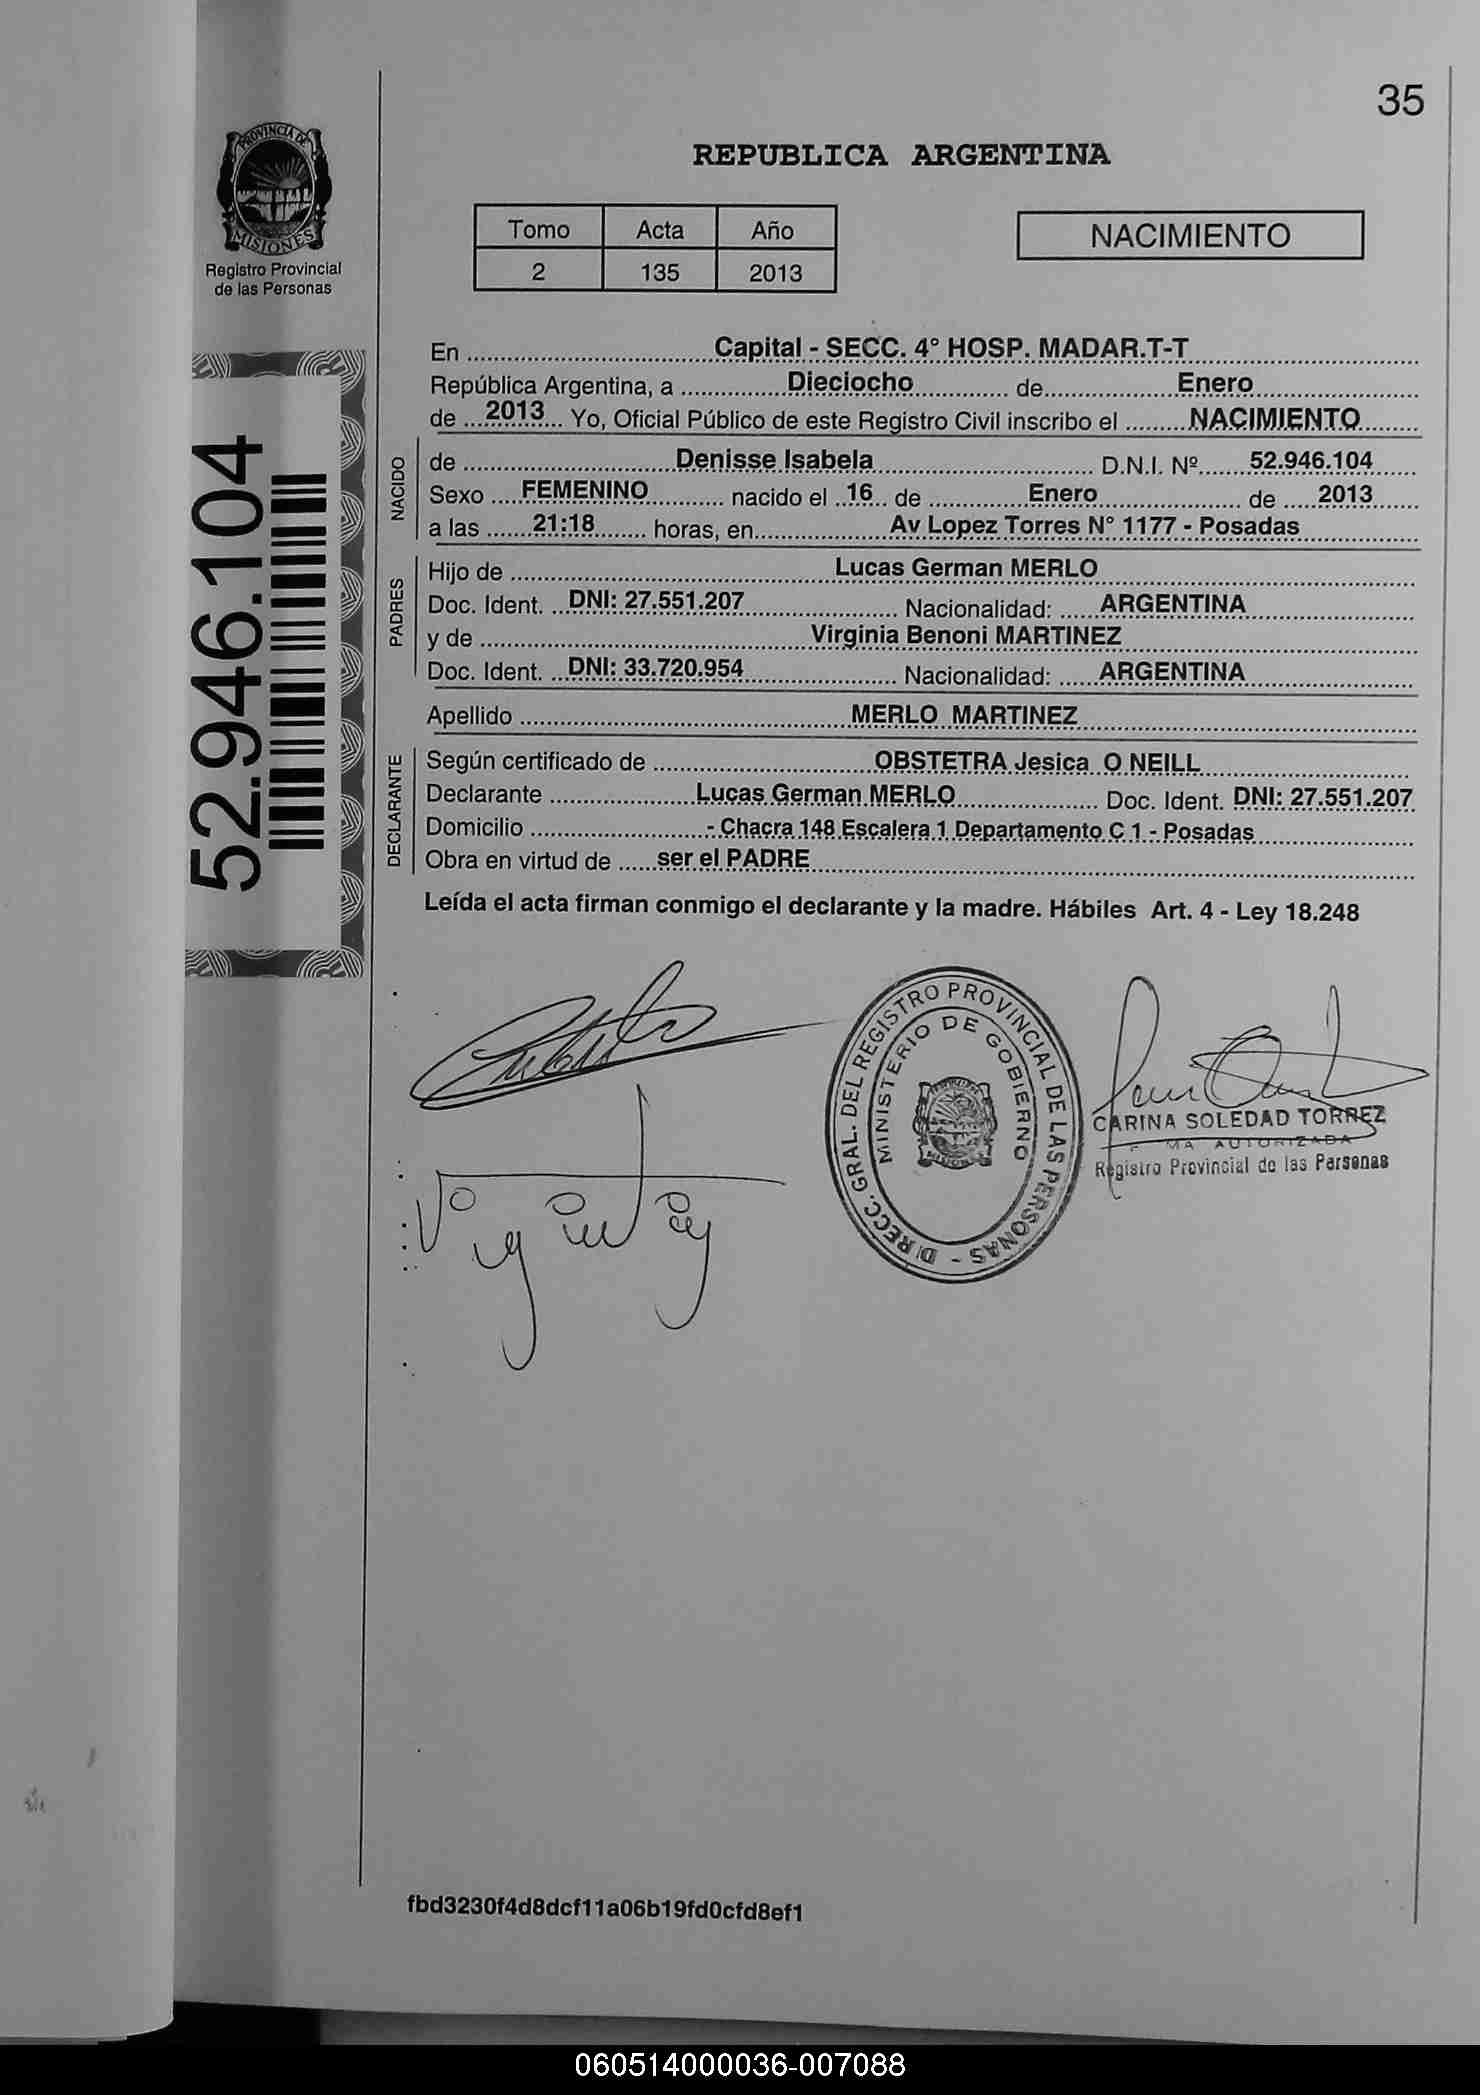 35
PROVINCIA DE
MISIONES
Registro Provincial
de las Personas
REPUBLICA ARGENTINA
Tomo Acta Año
2 135 2013
NACIMIENTO
En Capital - SECC. 4° HOSP. MADAR.T-T
República Argentina, a Dieciocho de Enero
de 2013 Yo, Oficial Público de este Registro Civil inscribo el NACIMIENTO
NACIDO
de Denisse Isabela D.N.I. Nº 52.946.104
Sexo FEMENINO nacido el 16 de Enero de 2013
a las 21:18 horas, en Av Lopez Torres N° 1177 - Posadas
PADRES
Hijo de Lucas German MERLO
Doc. Ident. DNI: 27.551.207 Nacionalidad: ARGENTINA
y de Virginia Benoni MARTINEZ
Doc. Ident. DNI: 33.720.954 Nacionalidad: ARGENTINA
Apellido MERLO MARTINEZ
DECLARANTE
Según certificado de OBSTETRA Jesica O NEILL
Declarante Lucas German MERLO Doc. Ident. DNI: 27.551.207
Domicilio - Chacra 148 Escalera 1 Departamento C 1 - Posadas
Obra en virtud de ser el PADRE
Leída el acta firman conmigo el declarante y la madre. Hábiles Art. 4 - Ley 18.248
52.946.104
DIRECC. GRAL. DEL REGISTRO PROVINCIAL DE LAS PERSONAS -
MINISTERIO DE GOBIERNO
MISIONES
CARINA SOLEDAD TORREZ
AUTORIZADA
Registro Provincial de las Personas
fbd3230f4d8dcf11a06b19fd0cfd8ef1
060514000036-007088